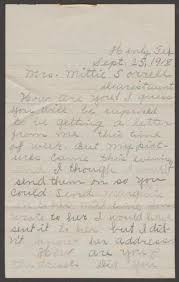 Henly Tex
Sept. 25, 1918
Mrs. Mittie Sorrell
dearest aunt
How are you? I guess
you will be suprised
to be getting a letter
from me this time
of week. But my pict
ures came this evening
and I though
send them on so you
could send
wrote to her I would have
sent it to her but I did
n't know her address
How are you
Did you